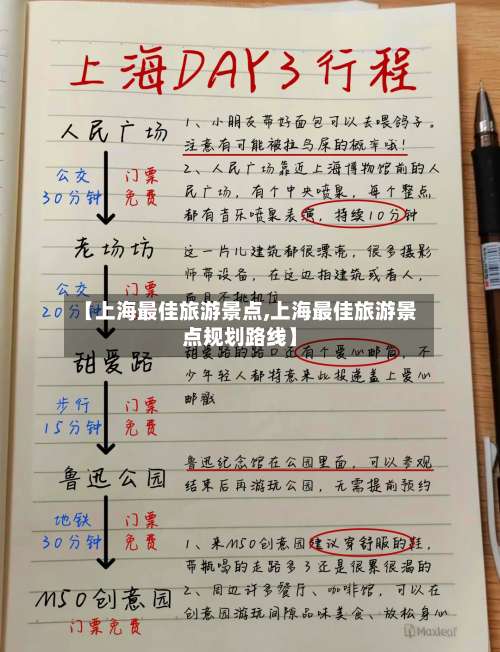 上海DAY3行程
人民广场
1、小朋友带好面包可以去喂鸽子。
注意有可能被拉鸟屎的概率哦!
公交 门票
30分钟 免费
2、人民广场靠近上海博物馆前的人
民广场,有个中央喷泉,每个整点
都有音乐喷泉表演,持续10分钟
老场坊
这一片儿建筑都很漂亮,很多摄影
师带设备,在这边拍建筑或者人,
公交 门票
20分钟
而且不挑机位
【上海最佳旅游景点,上海最佳旅游景
点规划路线】
甜爱路
甜爱路的路口还有个爱心邮筒,不
少年轻人都特意来此投递盖上爱心
邮戳
步行 门票
15分钟 免费
鲁迅公园
鲁迅纪念馆在公园里面,可以参观
结束后再游玩公园,无需提前预约
地铁 门票
30分钟 免费
1、来M50创意园建议穿舒服的鞋,
带瓶喝的走路多了还是很累很渴的
M50创意园
门票免费
2、周边许多餐厅、咖啡馆,可以在
创意园游玩间隙品味美食、放松身心
Maxleaf